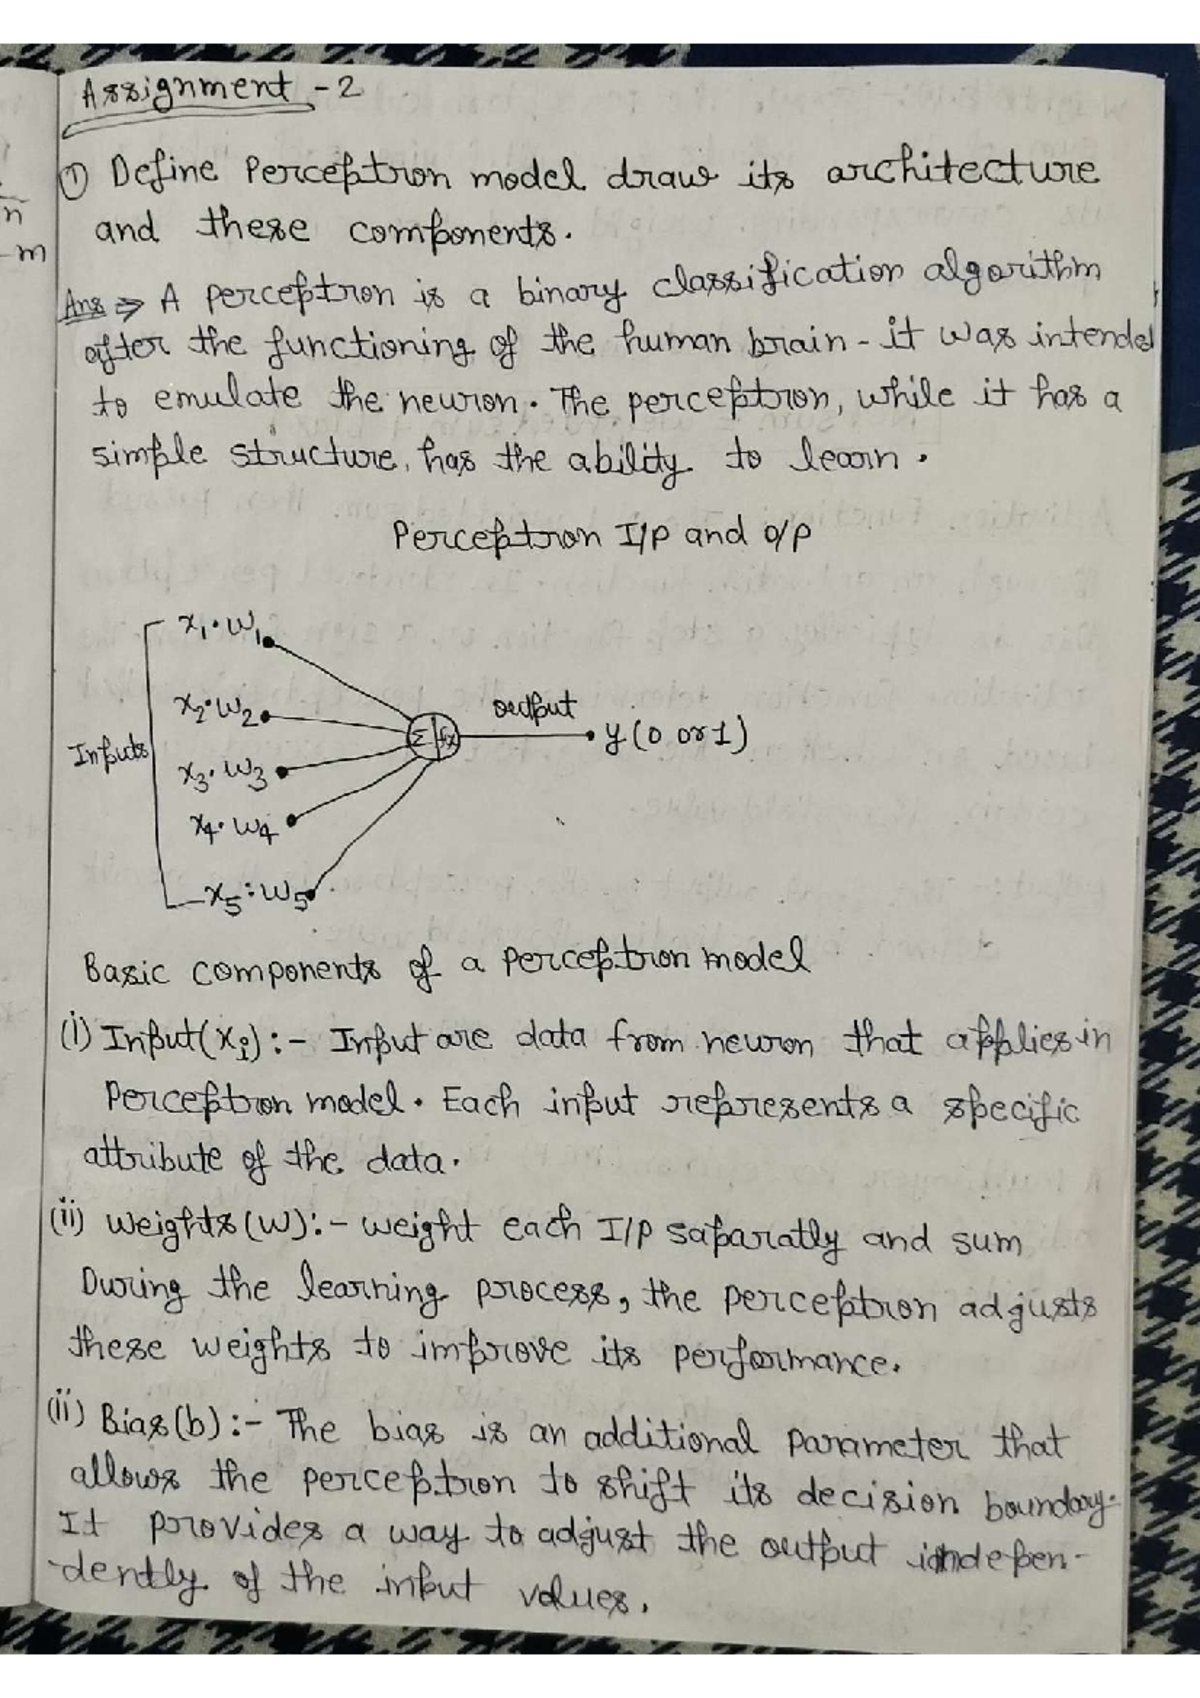 Assignment - 2
① Define Perceptron model draw its architecture
and these components.
Ans ⇒ A perceptron is a binary classification algorithm
after the functioning of the human brain - it was intended
to emulate the neuron. The perceptron, while it has a
simple structure, has the ability to learn.
Perceptron I/P and O/P
x₁·w₁
x₂·w₂
x₃·w₃
x₄·w₄
x₅:w₅
Inputs
Σ fx
output
y (0 or 1)
Basic components of a perceptron model
(i) Input(xᵢ) :- Input are data from neuron that applies in
Perceptron model. Each input represents a specific
attribute of the data.
(ii) Weights (w) :- weight each I/P saparatly and sum
During the learning process, the perceptron adjusts
these weights to improve its performance.
(ii) Bias (b) :- The bias is an additional parameter that
allows the perceptron to shift its decision boundary.
It provides a way to adjust the output indepen-
dently of the input values.
n
- m